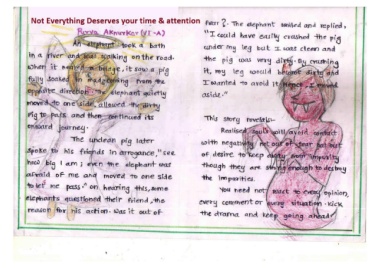 Not Everything Deserves your time & attention
An elephant took a bath
in a river and was walking on the road.
When it neared a bridge, it saw a pig
fully soaked in mud coming from the
opposite direction. The elephant quietly
moved to one side, allowed the dirty
pig to pass and then continued its
onward journey.
The unclean pig later
spoke to his friends in arrogance, "see
how big I am; even the elephant was
afraid of me and moved to one side
to let me pass". on hearing this, some
elephants questioned their friend, the
reason for his action. Was it out of
fear? The elephant smiled and replied,
"I could have easily crushed the pig
under my leg but I was clean and
the pig was very dirty. By crushing
it, my leg would become dirty and
I wanted to avoid it. Hence, I moved
aside."
This story reveals:-
Realised souls will avoid contact
with negativity not out of fear but out
of desire to keep away from impurity
though they are strong enough to destroy
the impurities.
You need not react to every opinion,
every comment or every situation. Kick
the drama and keep going ahead